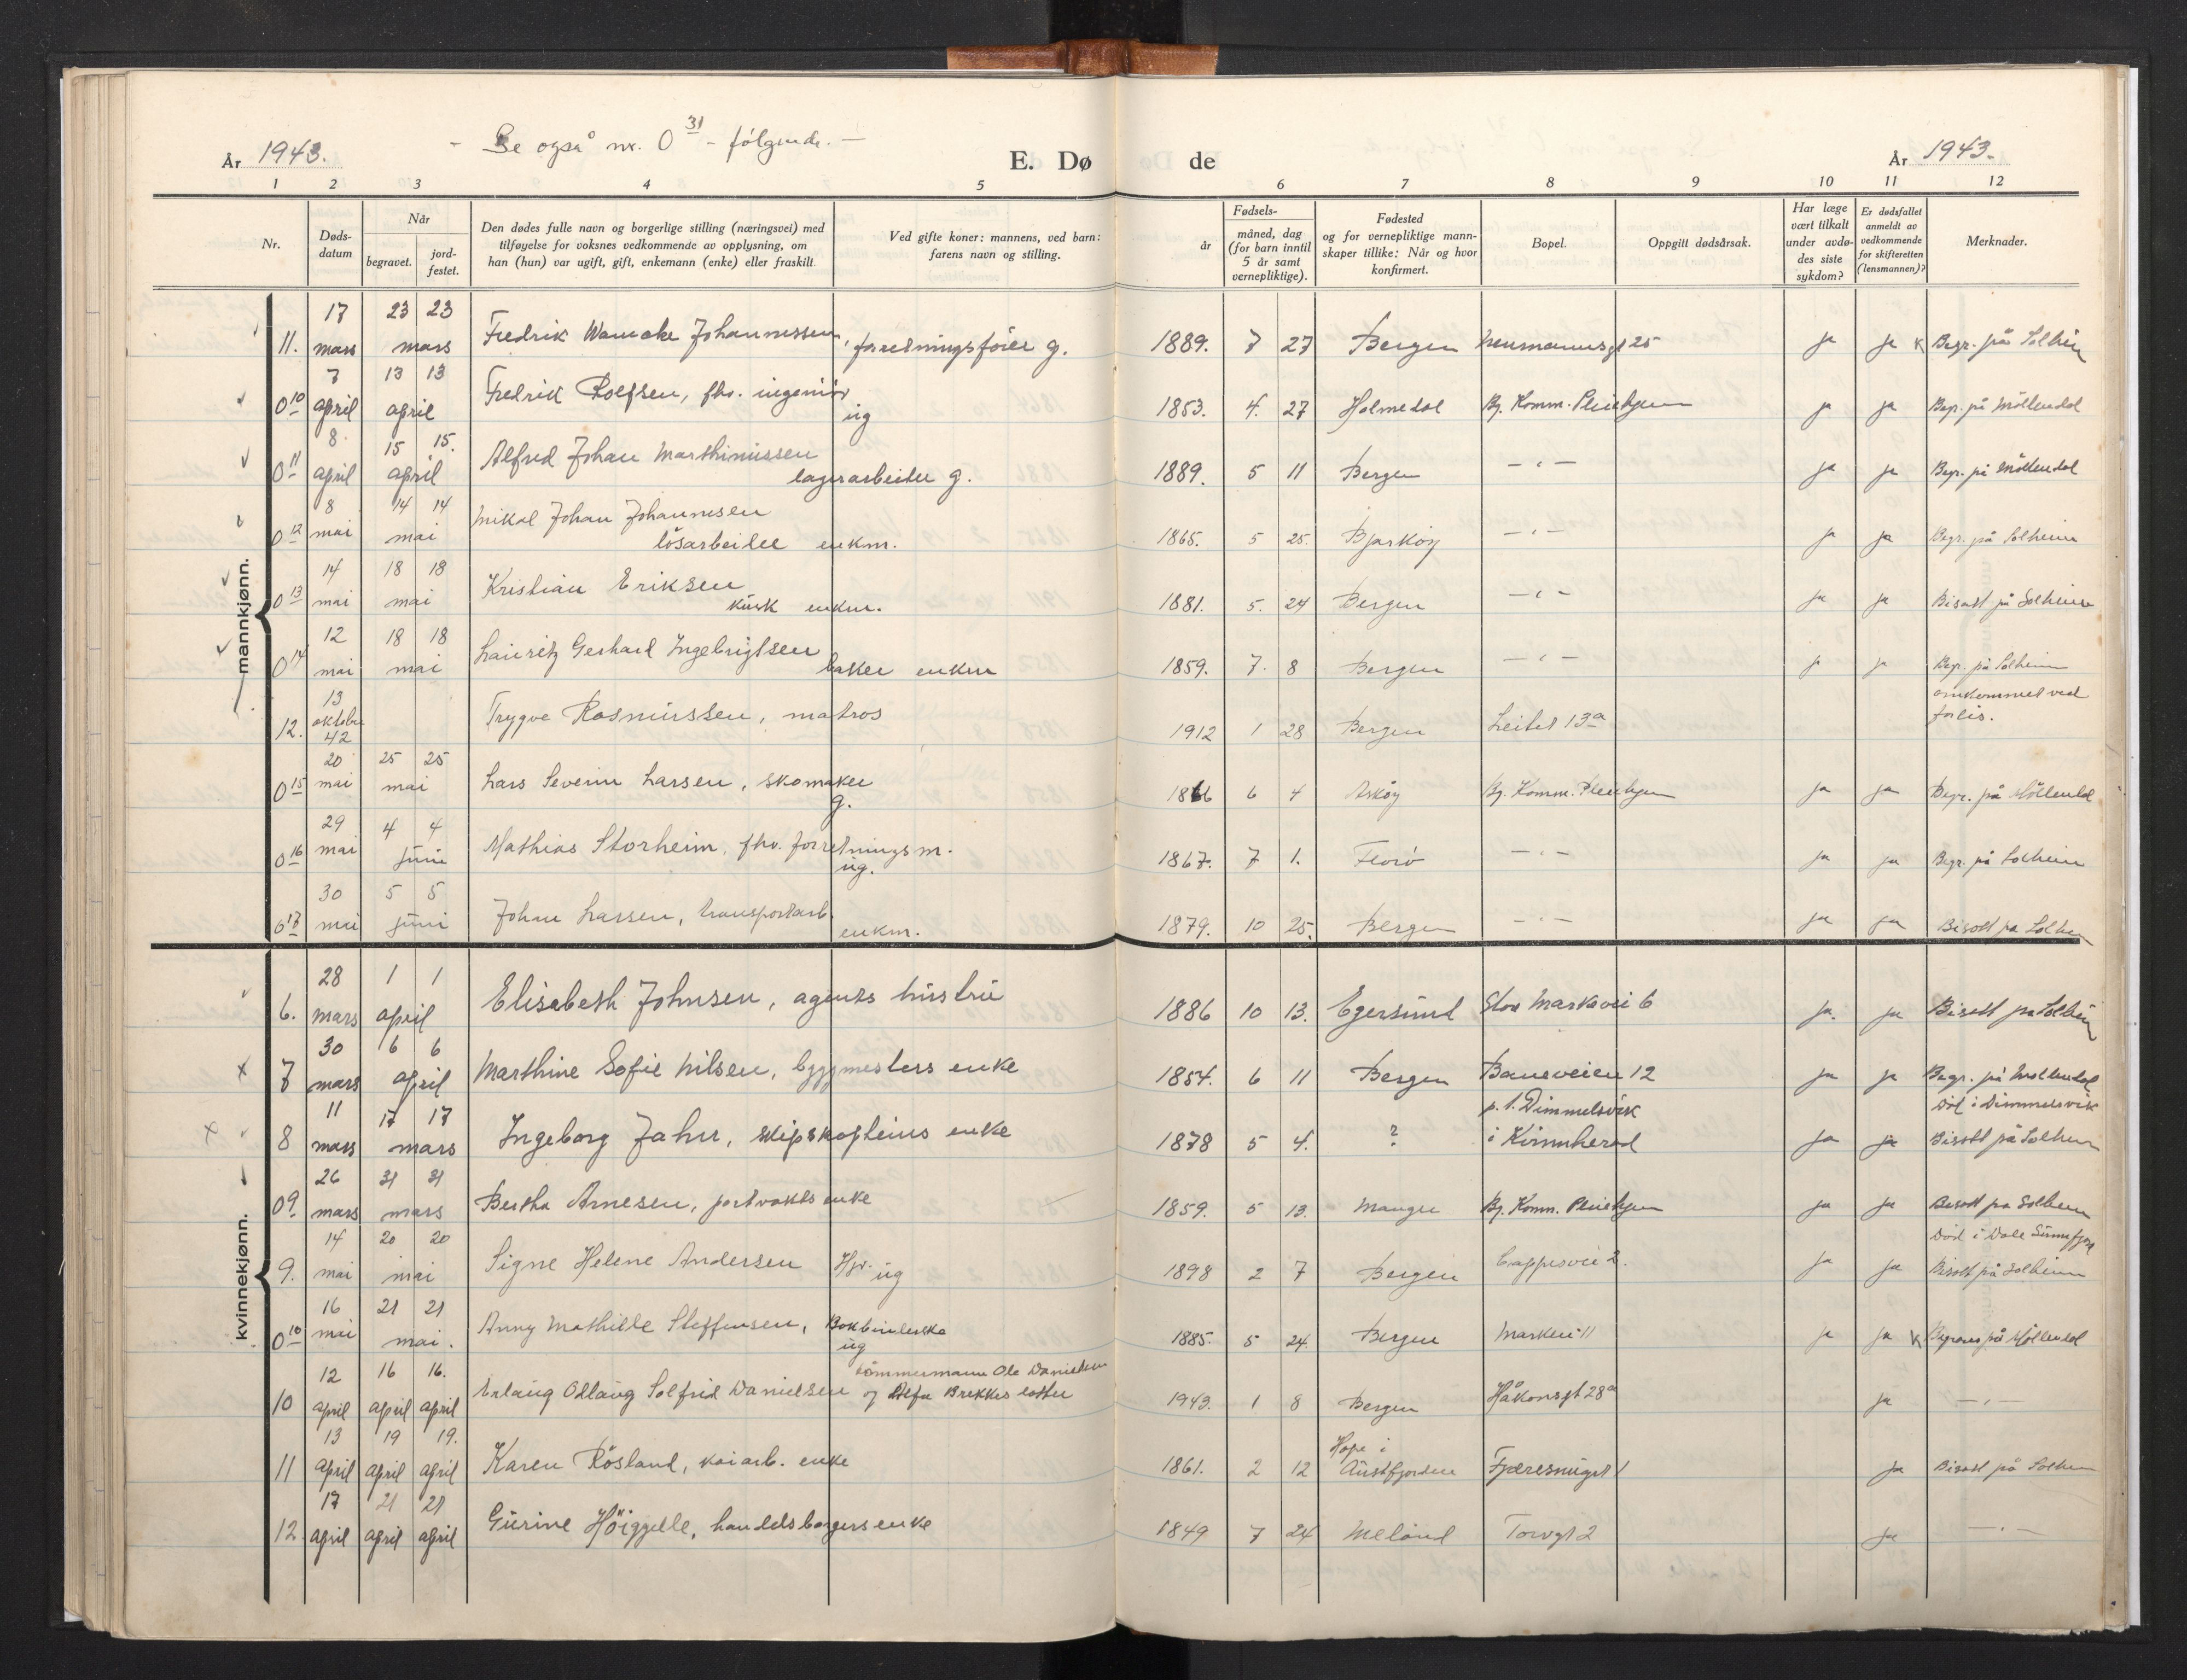 År 1943.
- Se også nr. 0 31 - følgende. -
E. Dø de
År 1943.
1 2 3 4 5 6 7 8 9 10 11 12
Nr.
Døds-
datum
Når
begravet.
jord-
festet.
Den dødes fulle navn og borgerlige stilling (næringsvei) med
tilføyelse for voksnes vedkommende av opplysning, om
han (hun) var ugift, gift, enkemann (enke) eller fraskilt
Ved gifte koner: mannens, ved barn:
farens navn og stilling.
år
Fødsels-
måned, dag
(for barn inntil
5 år samt
vernepliktige).
Fødested
og for vernepliktige mann-
skaper tillike: Når og hvor
konfirmert.
Bopel.
Oppgitt dødsårsak.
Har læge
vært tilkalt
under avdø-
des siste
sykdom?
Er dødsfallet
anmeldt av
vedkommende
for skifteretten
(lensmannen)?
Merknader.
mannkjønn.
17 23 23
11. mars mars Fredrik Johannessen, forretningsfører g. 1889. 7 27 Bergen Neumannsgt 25 ja ja x Begr. på Solheim
7 13 13
0 10 april april Fredrik Rolfsen, fhv. ingeniør ug 1853. 4. 27 Holmedal Bg. Komm. Pleiehjem ja ja Begr. på Møllendal
8 15 15.
0 11 april april Alfred Johan Marthinussen
lagerarbeider g. 1889. 5 11 Bergen - " - ja ja Begr. på Møllendal
8 14 14
0 12 mai mai Mikal Johan Johannesen
løsarbeider enkm. 1865. 5 25. Bjarkøy - " - ja ja Begr. på Solheim
14 18 18
0 13 mai mai Kristian Eriksen
kusk enkm. 1881. 5. 24 Bergen - " - ja ja Bisatt på Solheim
12 18 18
0 14 mai mai Lauritz Gerhard Ingebrigtsen
baker enkm 1859. 7. 8 Bergen - " - ja ja Begr. på Solheim
13
12. oktober
42 Trygve Rasmussen, matros 1912 1 28 Bergen Leitet 13a omkommet ved
forlis.
20 25 25
0 15 mai mai Lars Severin Larsen, skomaker
g. 1866 6 4 Askøy Bg. Komm. Pleiehjem ja ja Begr. på Møllendal
29 4 4
0 16 mai juni Mathias Storheim, fhv. forretningsm.
ug. 1867. 7 1. Florø - " - ja ja Begr. på Solheim
30 5 5
0 17 mai juni Johan Larsen, transportarb.
enkm. 1879. 10 25. Bergen - " - ja ja Bisatt på Solheim
kvinnekjønn.
28 1 1
6. mars april Elisabeth Johnsen, agents hustru 1886 10 13. Egersund Markevei 6 ja. ja Bisatt på Solheim
30 6 6
7 mars april Marthine Sofie Nilsen, byggmesters enke 1854. 6 11 Bergen Baneveien 12 ja ja Begr. på Møllendal
11 17 17
8 mars mars Ingeborg Jahn, skipskapteins enke 1878 5 4. ? p. t. Dimmelsvik
i Kvinnherad ja ja Død i Dimmelsvik
Bisatt på Solheim
26 31 31
09. mars mars Bertha Arnesen, portvakts enke 1859. 5 13. Manger Bg. Komm. Pleiehjem ja ja Bisatt på Solheim
14 20 20
9. mai mai Signe Helene Andersen Hjv. ug 1898 2 7 Bergen Cappesvei 2. ja ja Død i Dale Sunnfjord
Bisatt på Solheim
16 21 21
0 10 mai mai. Anny Mathilde Steffensen, Bokbinderske
ug 1885. 5 24 Bergen Marken 11 ja ja x på Møllendal
12 16 16.
10 april april april Erlaug Odlaug Solfrid Danielsen tømmermann Ole Danielsen
og Alfa Brekkes datter 1943. 1 8 Bergen Håkonsgt 28a ja - " -
13 19 19.
11 april april april Karen Røsland, kaiarb. enke 1861. 2 12 Hope i
Austfjorden Fjæresmuget 1 ja Bisatt på Solheim
17 21 21
12. april april april Gurine Høigjelle, handelsborgers enke 1849 7 24 Meland Torvgt 2 ja - " -